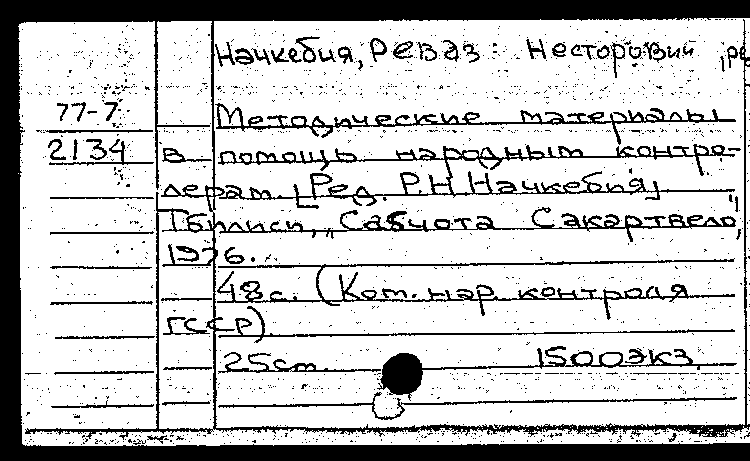 Начкебия, Реваз Несторович, ре
77-7
Методические материалы
2134
в помощь народным контро-
лерам. [Ред. Р.Н. Начкебия]
Тбилиси, "Сабчота Сакартвело",
1976.
48с. (Ком. нар. контроля
ГССР)
25см. 1500экз.